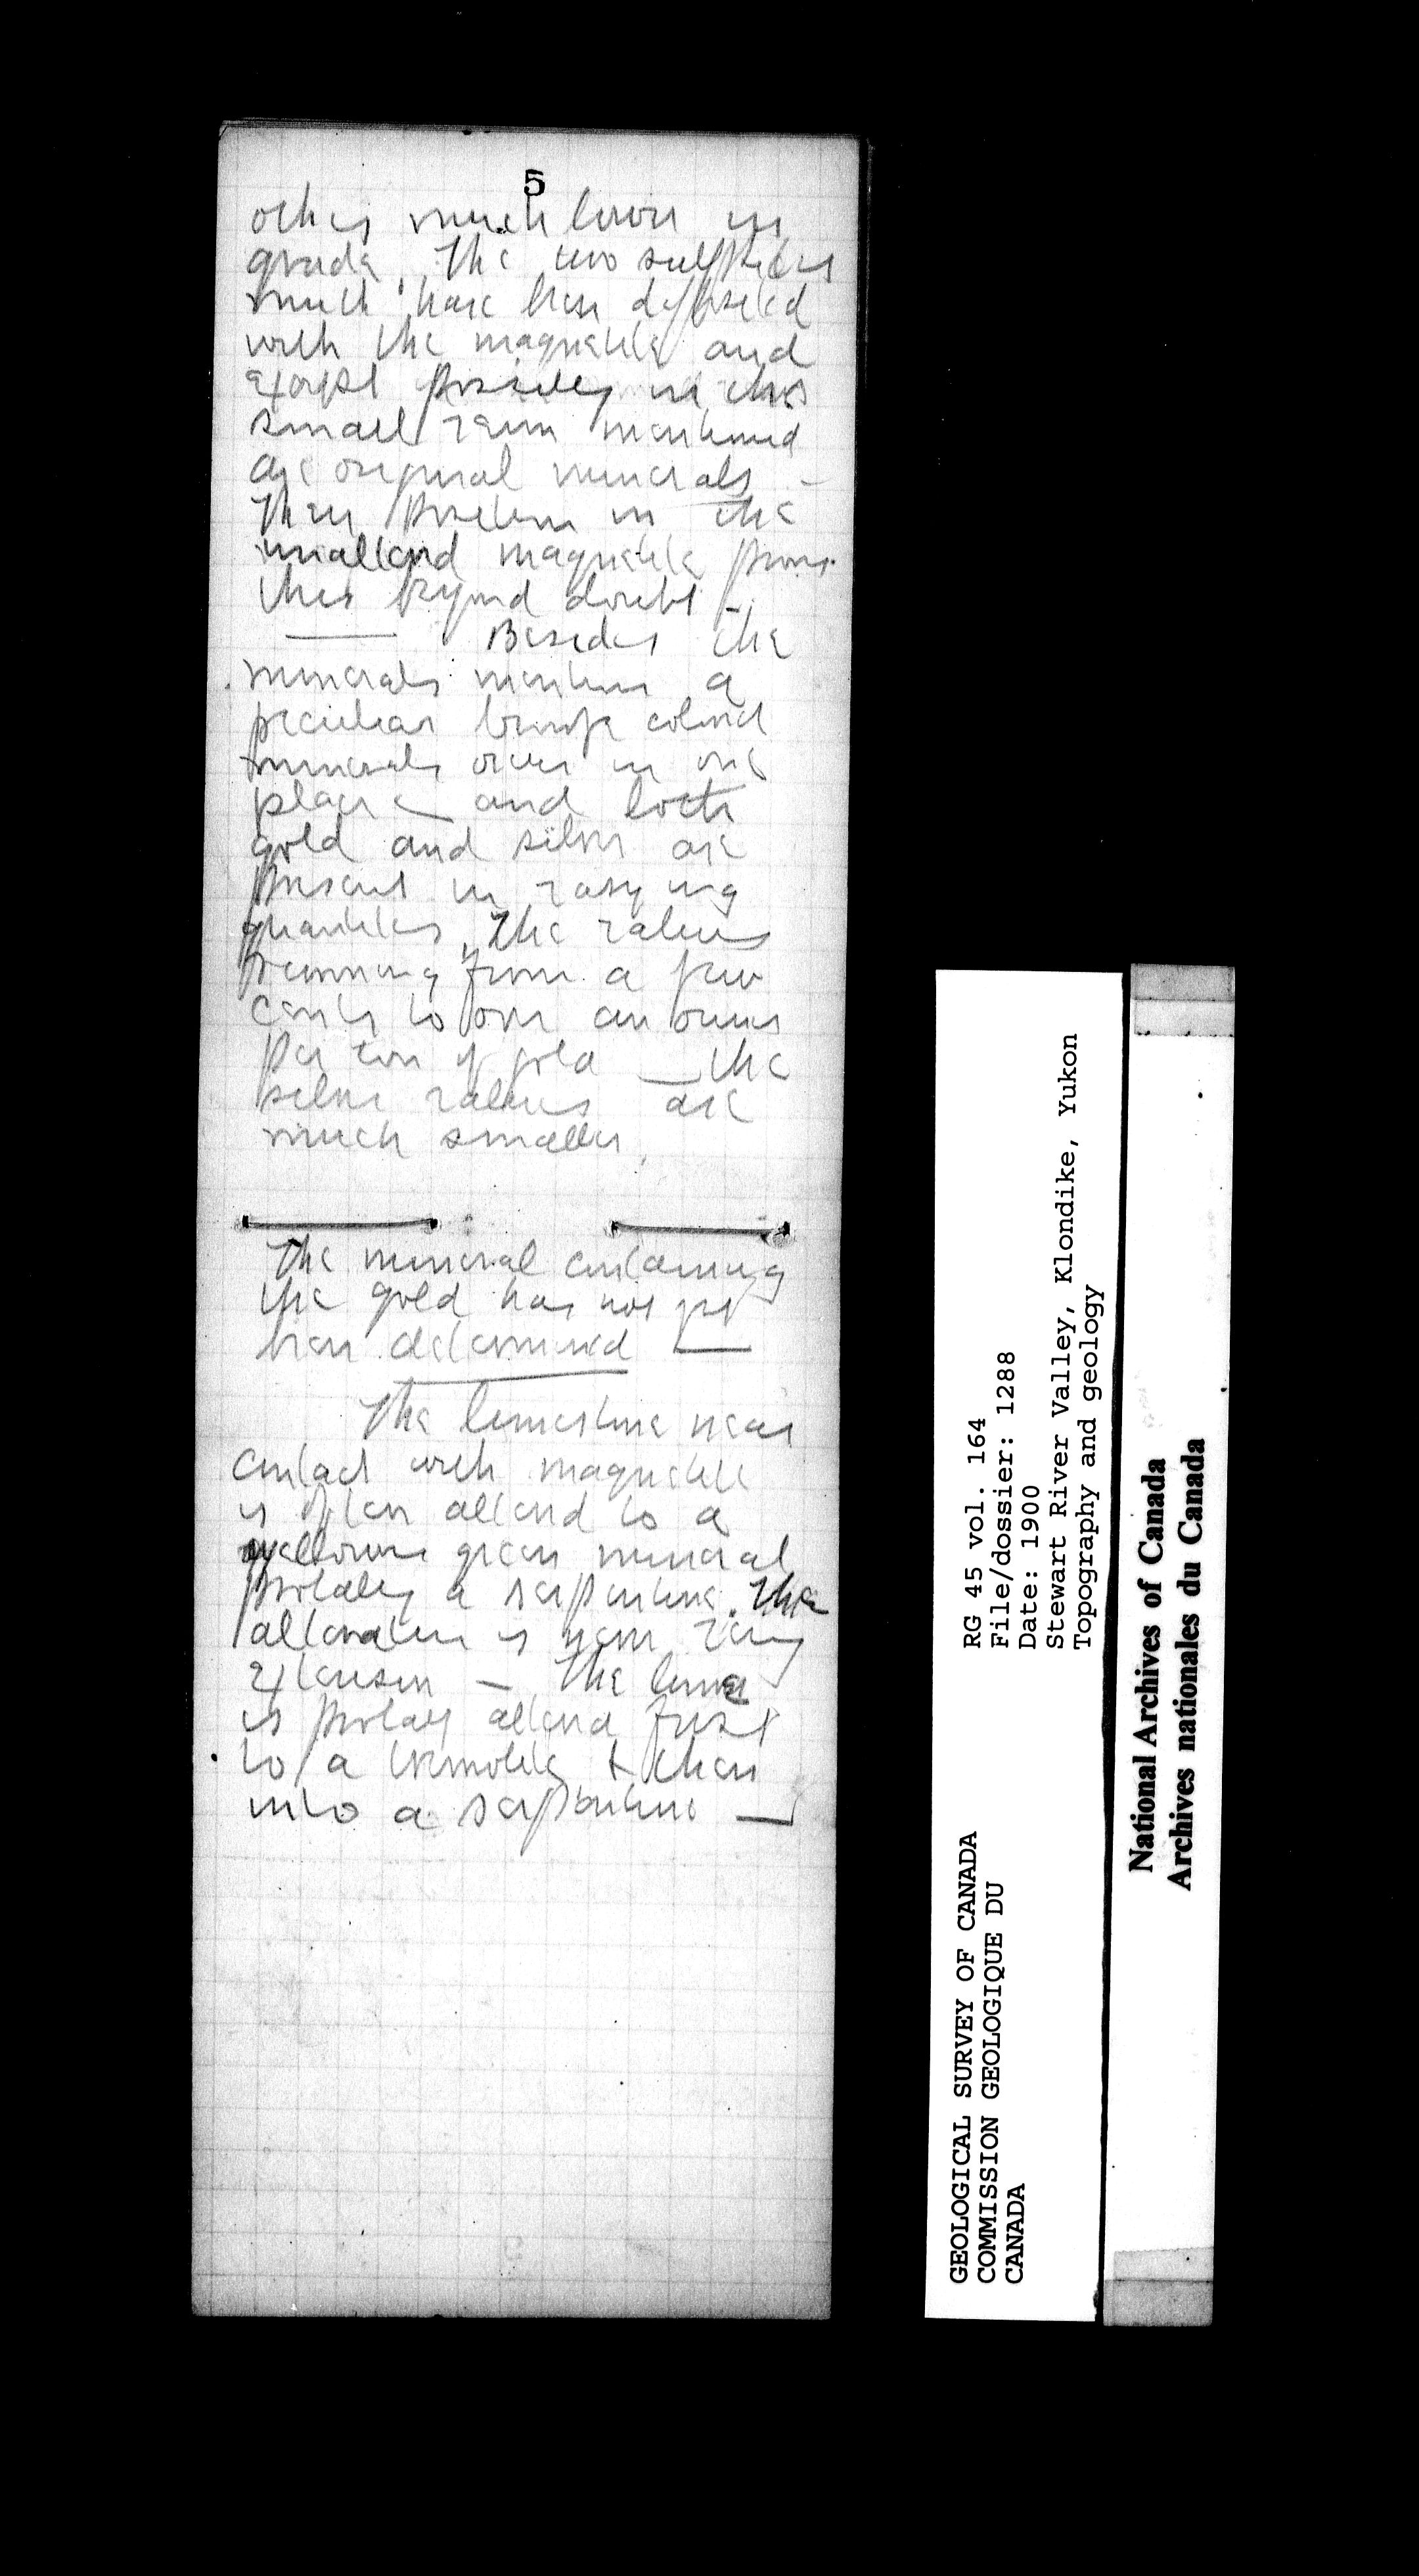 5
others much lower in
grade. The two sulphides
must have been deposited
with the magnetite and
except possibly in this
small vein mentioned
are original minerals -
Their position in the
unaltered magnetite proves
this beyond doubt -
Besides the
minerals mention a
peculiar bronze colored
minerals occur in one
place - and both
gold and silver are
present in varying
quantities, the values
running from a few
cents to over an ounce
per ton of gold — the
silver values are
much smaller.
The mineral containing
the gold has not yet
been determined —
The limestone near
contact with magnetite
is often altered to a
yellowish green mineral
probably a serpentine. The
alteration is never very
extensive — The lime
is probably altered first
to a tremolite & then
into a serpentine —
GEOLOGICAL SURVEY OF CANADA
COMMISSION GEOLOGIQUE DU
CANADA
RG 45 vol. 164
File/dossier: 1288
Date: 1900
Stewart River Valley, Klondike, Yukon
Topography and geology
National Archives of Canada
Archives nationales du Canada